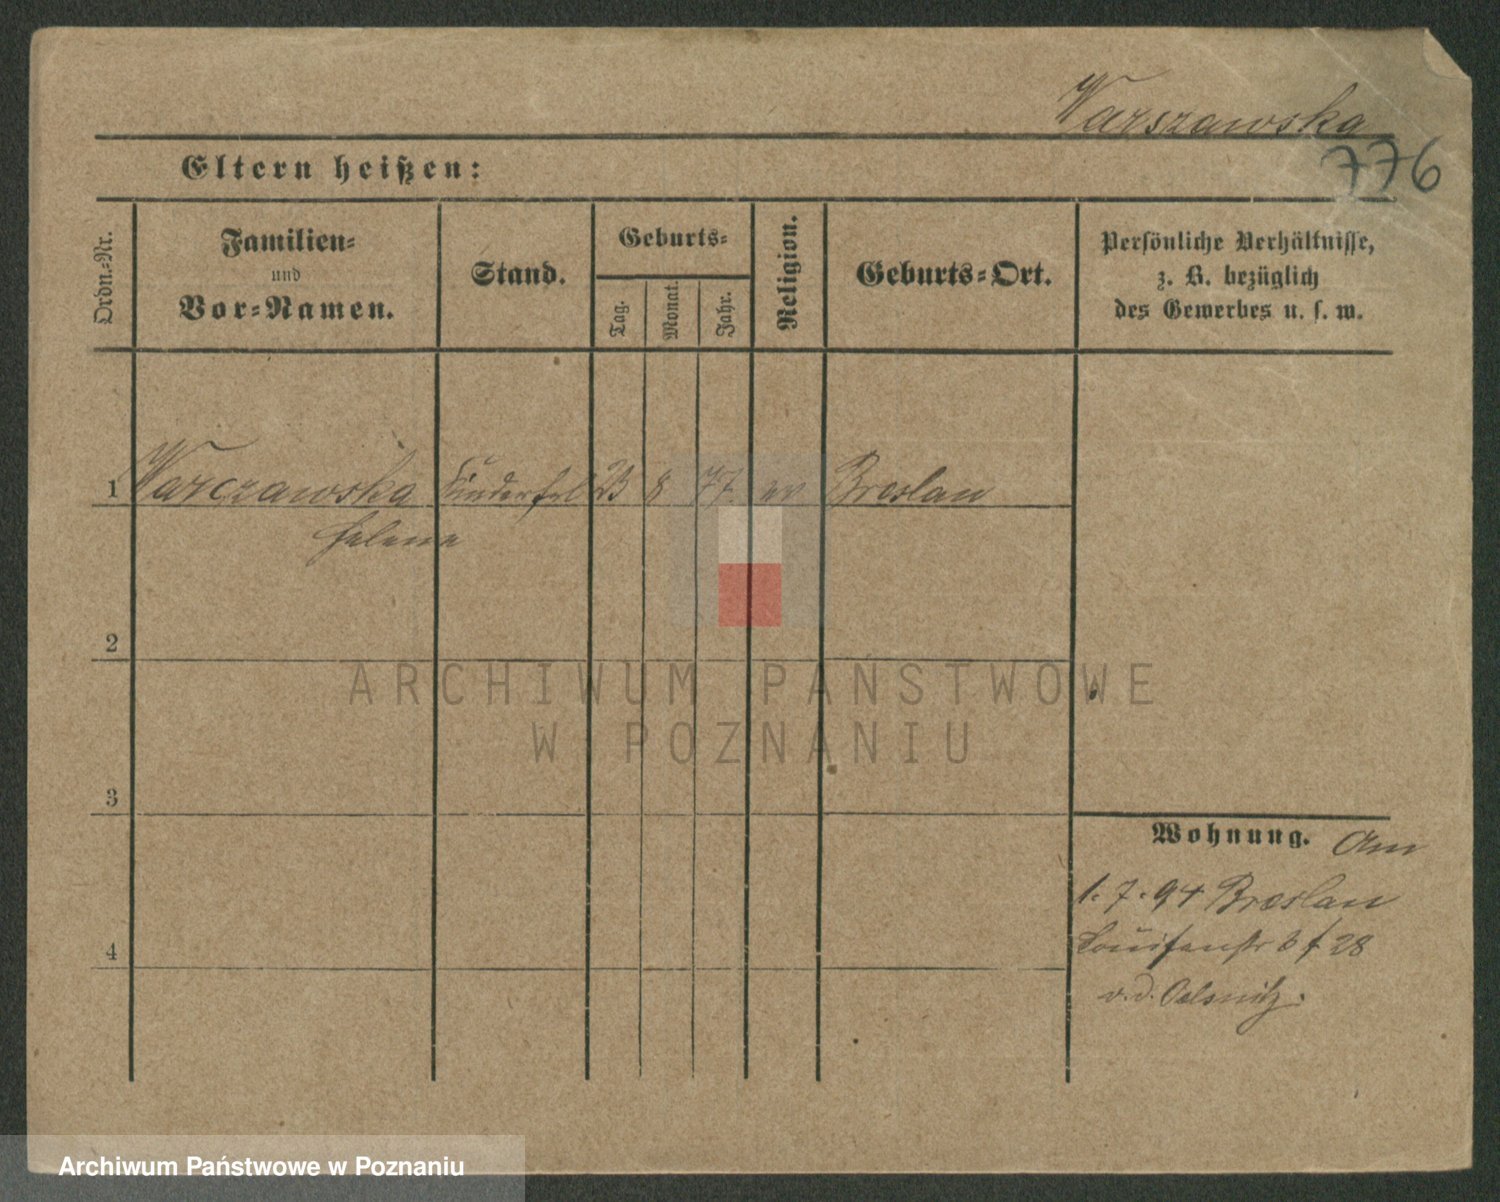 Warszawska
776
Eltern heißen:
Ordn.-Nr.
Familien-
und
Vor-Namen.
Stand.
Geburts-
Tag.
Monat.
Jahr.
Religion.
Geburts-Ort.
Persönliche Verhältnisse,
z. B. bezüglich
des Gewerbes u. s. w.
1 Warczawska Kinderfrl 23 8 77. ev Breslau
Helene
2
3
4
Wohnung. Am
1. 7. 94 Breslau
Louisenstr 28
v. d. Oelsnitz.
ARCHIWUM PAŃSTWOWE
W POZNANIU
Archiwum Państwowe w Poznaniu